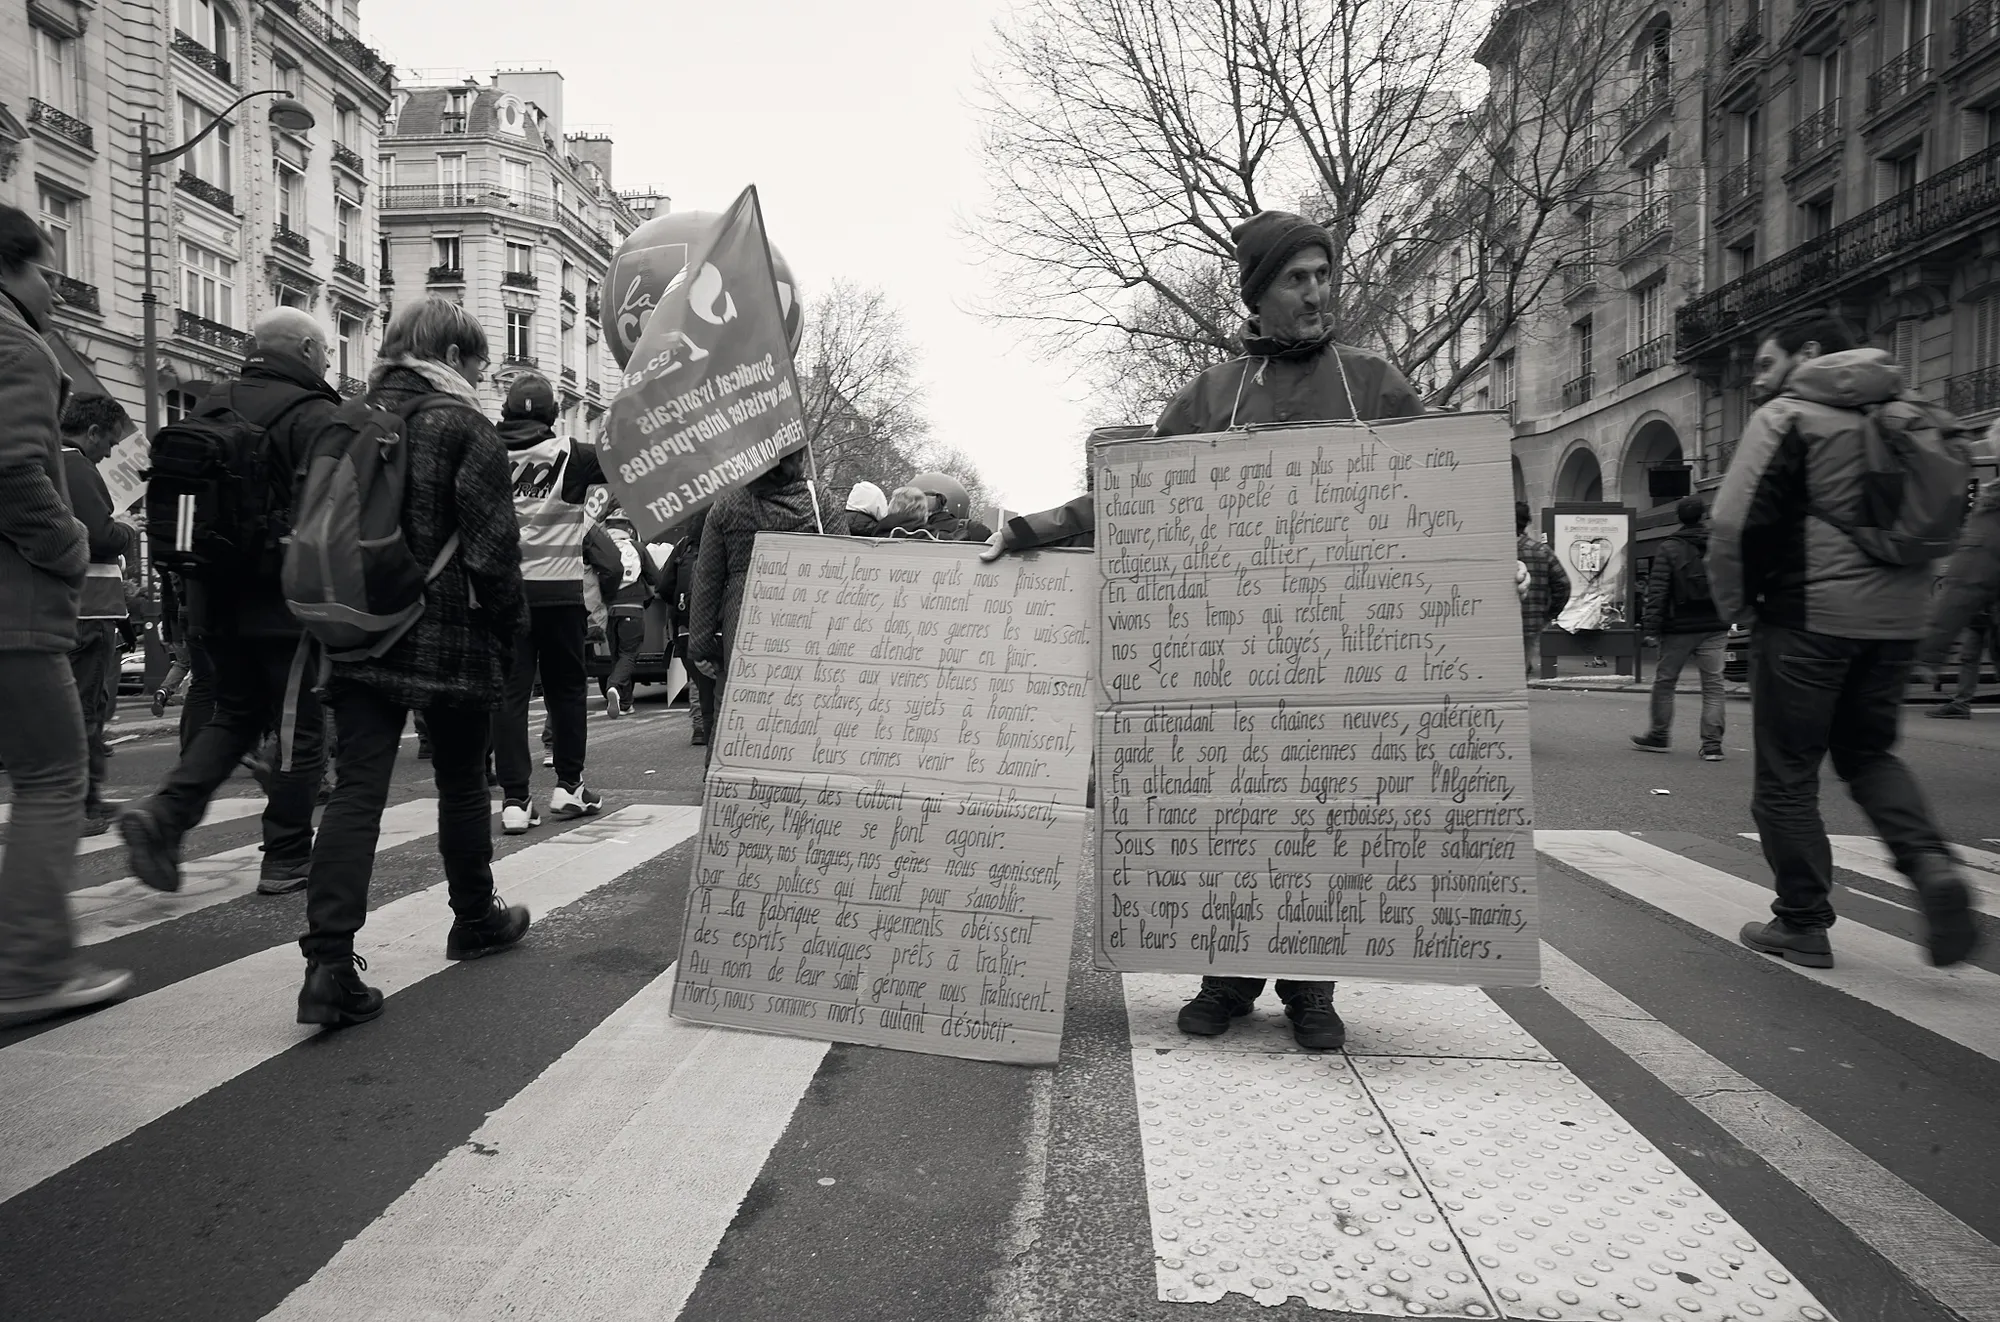 la
fa.cg
Syndicat français
des artistes interprètes
FÉDÉRATION DU SPECTACLE CGT
Rail
Quand on s'unit, leurs voeux qu'ils nous finissent.
Quand on se déchire, ils viennent nous unir.
Ils viennent par des dons, nos guerres les unissent.
Et nous on aime attendre pour en finir.
Des peaux lisses aux veines bleues nous banissent
comme des esclaves, des sujets à honnir.
En attendant que les temps les honnissent,
attendons leurs crimes venir les bannir.
Des Bugeaud, des Colbert qui s'anoblissent,
L'Algérie, l'Afrique se font agonir.
Nos peaux, nos langues, nos gènes nous agonissent,
par des polices qui tuent pour s'anoblir.
À la fabrique des jugements obéissent
des esprits ataviques prêts à trahir.
Au nom de leur saint génome nous trahissent.
Morts, nous sommes morts autant désobéir.
Du plus grand que grand au plus petit que rien,
chacun sera appelé à témoigner.
Pauvre, riche, de race inférieure ou Aryen,
religieux, athée, altier, roturier.
En attendant les temps diluviens,
vivons les temps qui restent sans supplier
nos généraux si choyés, hitlériens,
que ce noble occident nous a triés.
En attendant les chaînes neuves, galérien,
garde le son des anciennes dans tes cahiers.
En attendant d'autres bagnes pour l'Algérien,
la France prépare ses gerboises, ses guerriers.
Sous nos terres coule le pétrole saharien
et nous sur ces terres comme des prisonniers.
Des corps d'enfants chatouillent leurs sous-marins,
et leurs enfants deviennent nos héritiers.